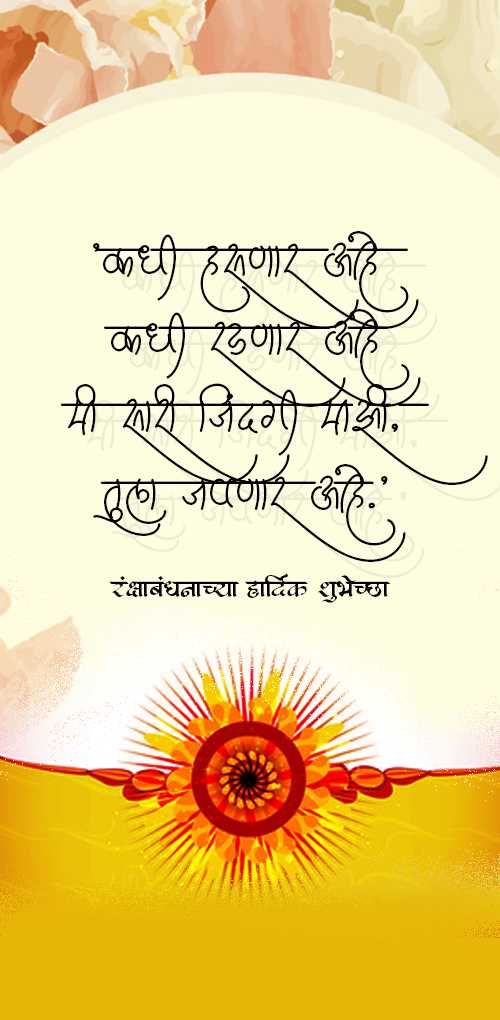 'कधी हसणार आहे
कधी रडणार आहे
मी सारी जिंदगी माझी,
तुला जपणार आहे.'
रंक्षाबंधनाच्या हार्दिक शुभेच्छा